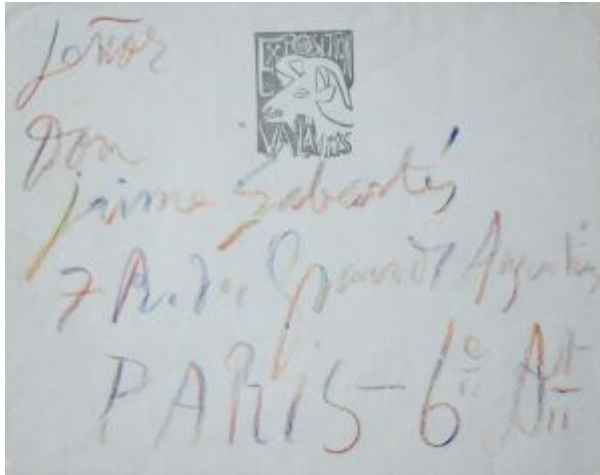 Señor
EXPOSITION
VALLAURIS
Don
Jaime Sabartés
7 R. des Grands Augustins
PARIS-6e Art